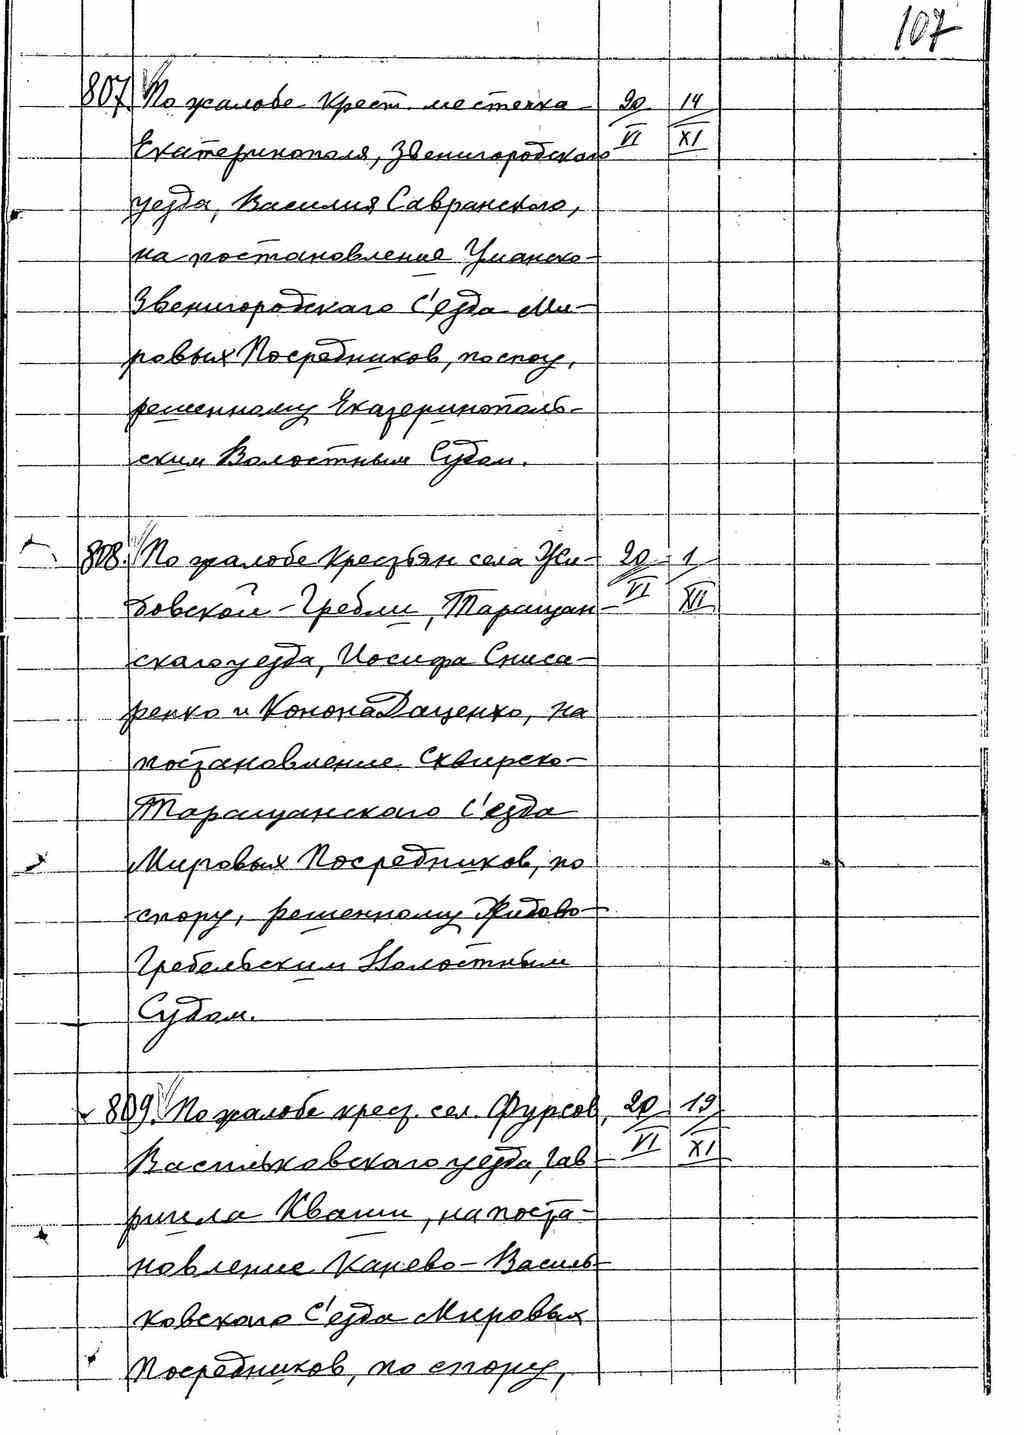 107
807. По жалобе крест. местечка 20/VI 14/XI
Екатеринополя, Звенигородского
уезда, Василия Савранского,
на постановление Уманско-
Звенигородского С'езда Ми-
ровых Посредников, по спору,
решенному Екатеринополь-
ским Волостным Судом.
808. По жалобе крестьян села Жи- 20/VI 1/XII
довской-Гребли, Таращан-
ского уезда, Иосифа Сниса-
ренко и Конона Даценко, на
постановление Сквирско-
Таращанского С'езда
Мировых Посредников, по
спору, решенному Жидово-
Гребельским Волостным
Судом.
809. По жалобе крест. сел. Фурсов, 20/VI 19/XI
Васильковского уезда, Гав-
риила Кваши, на поста-
новление Канево-Василь-
ковского С'езда Мировых
Посредников, по спору,